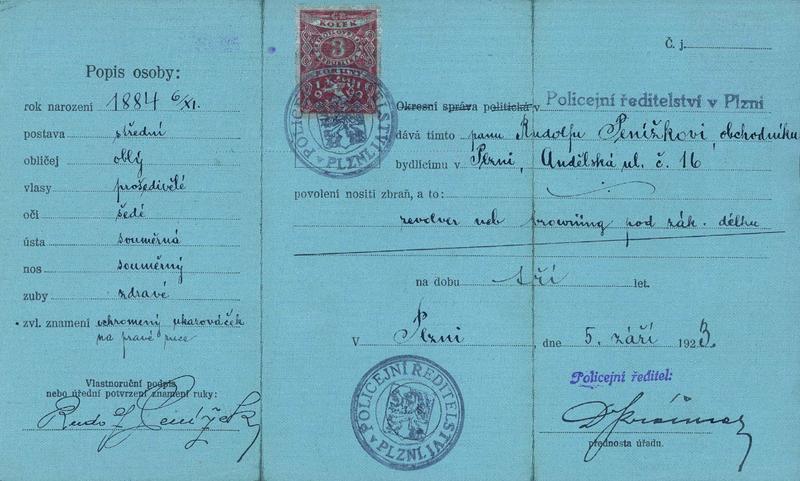 Popis osoby:
rok narození 1884 6/XI.
postava střední
obličej oblý
vlasy prošedivělé
oči šedé
ústa souměrná
nos souměrný
zuby zdravé
zvl. znamení ochromený ukazováček
na pravé ruce
Vlastnoruční podpis
nebo úřední potvrzení znamení ruky:
Rudolf Penížek
KOLEK
3
KORUNY
POLICEJNÍ ŘEDITELSTVÍ
V PLZNI.
Č. j.
Okresní správa politická v Policejní ředitelství v Plzni
dává tímto panu Rudolfu Penížkovi, obchodníku
bydlícímu v Plzni, Andělská ul. č. 16
povolení nositi zbraň, a to:
revolver neb browning pod zák. délku
na dobu tří let.
V Plzni, dne 5. září 1923.
POLICEJNÍ ŘEDITELSTVÍ
V PLZNI.
Policejní ředitel:
přednosta úřadu.